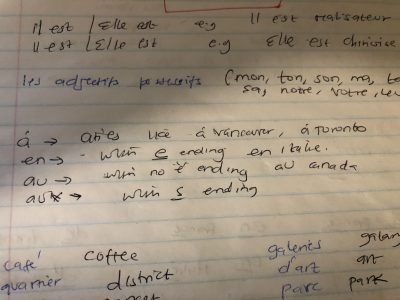 il est / Elle est e.g Il est realisateur
Il est / Elle est e.g Elle est chinoise
les adjectifs possessifs (mon, ton, son, ma, ta
sa, notre, votre, leu
á → cities like á Vancouver, á Toronto
en → - with e ending en italie.
au → with no e ending au canada
aux → with s ending
café coffee galeries galary
quartier district d'art art
parc park